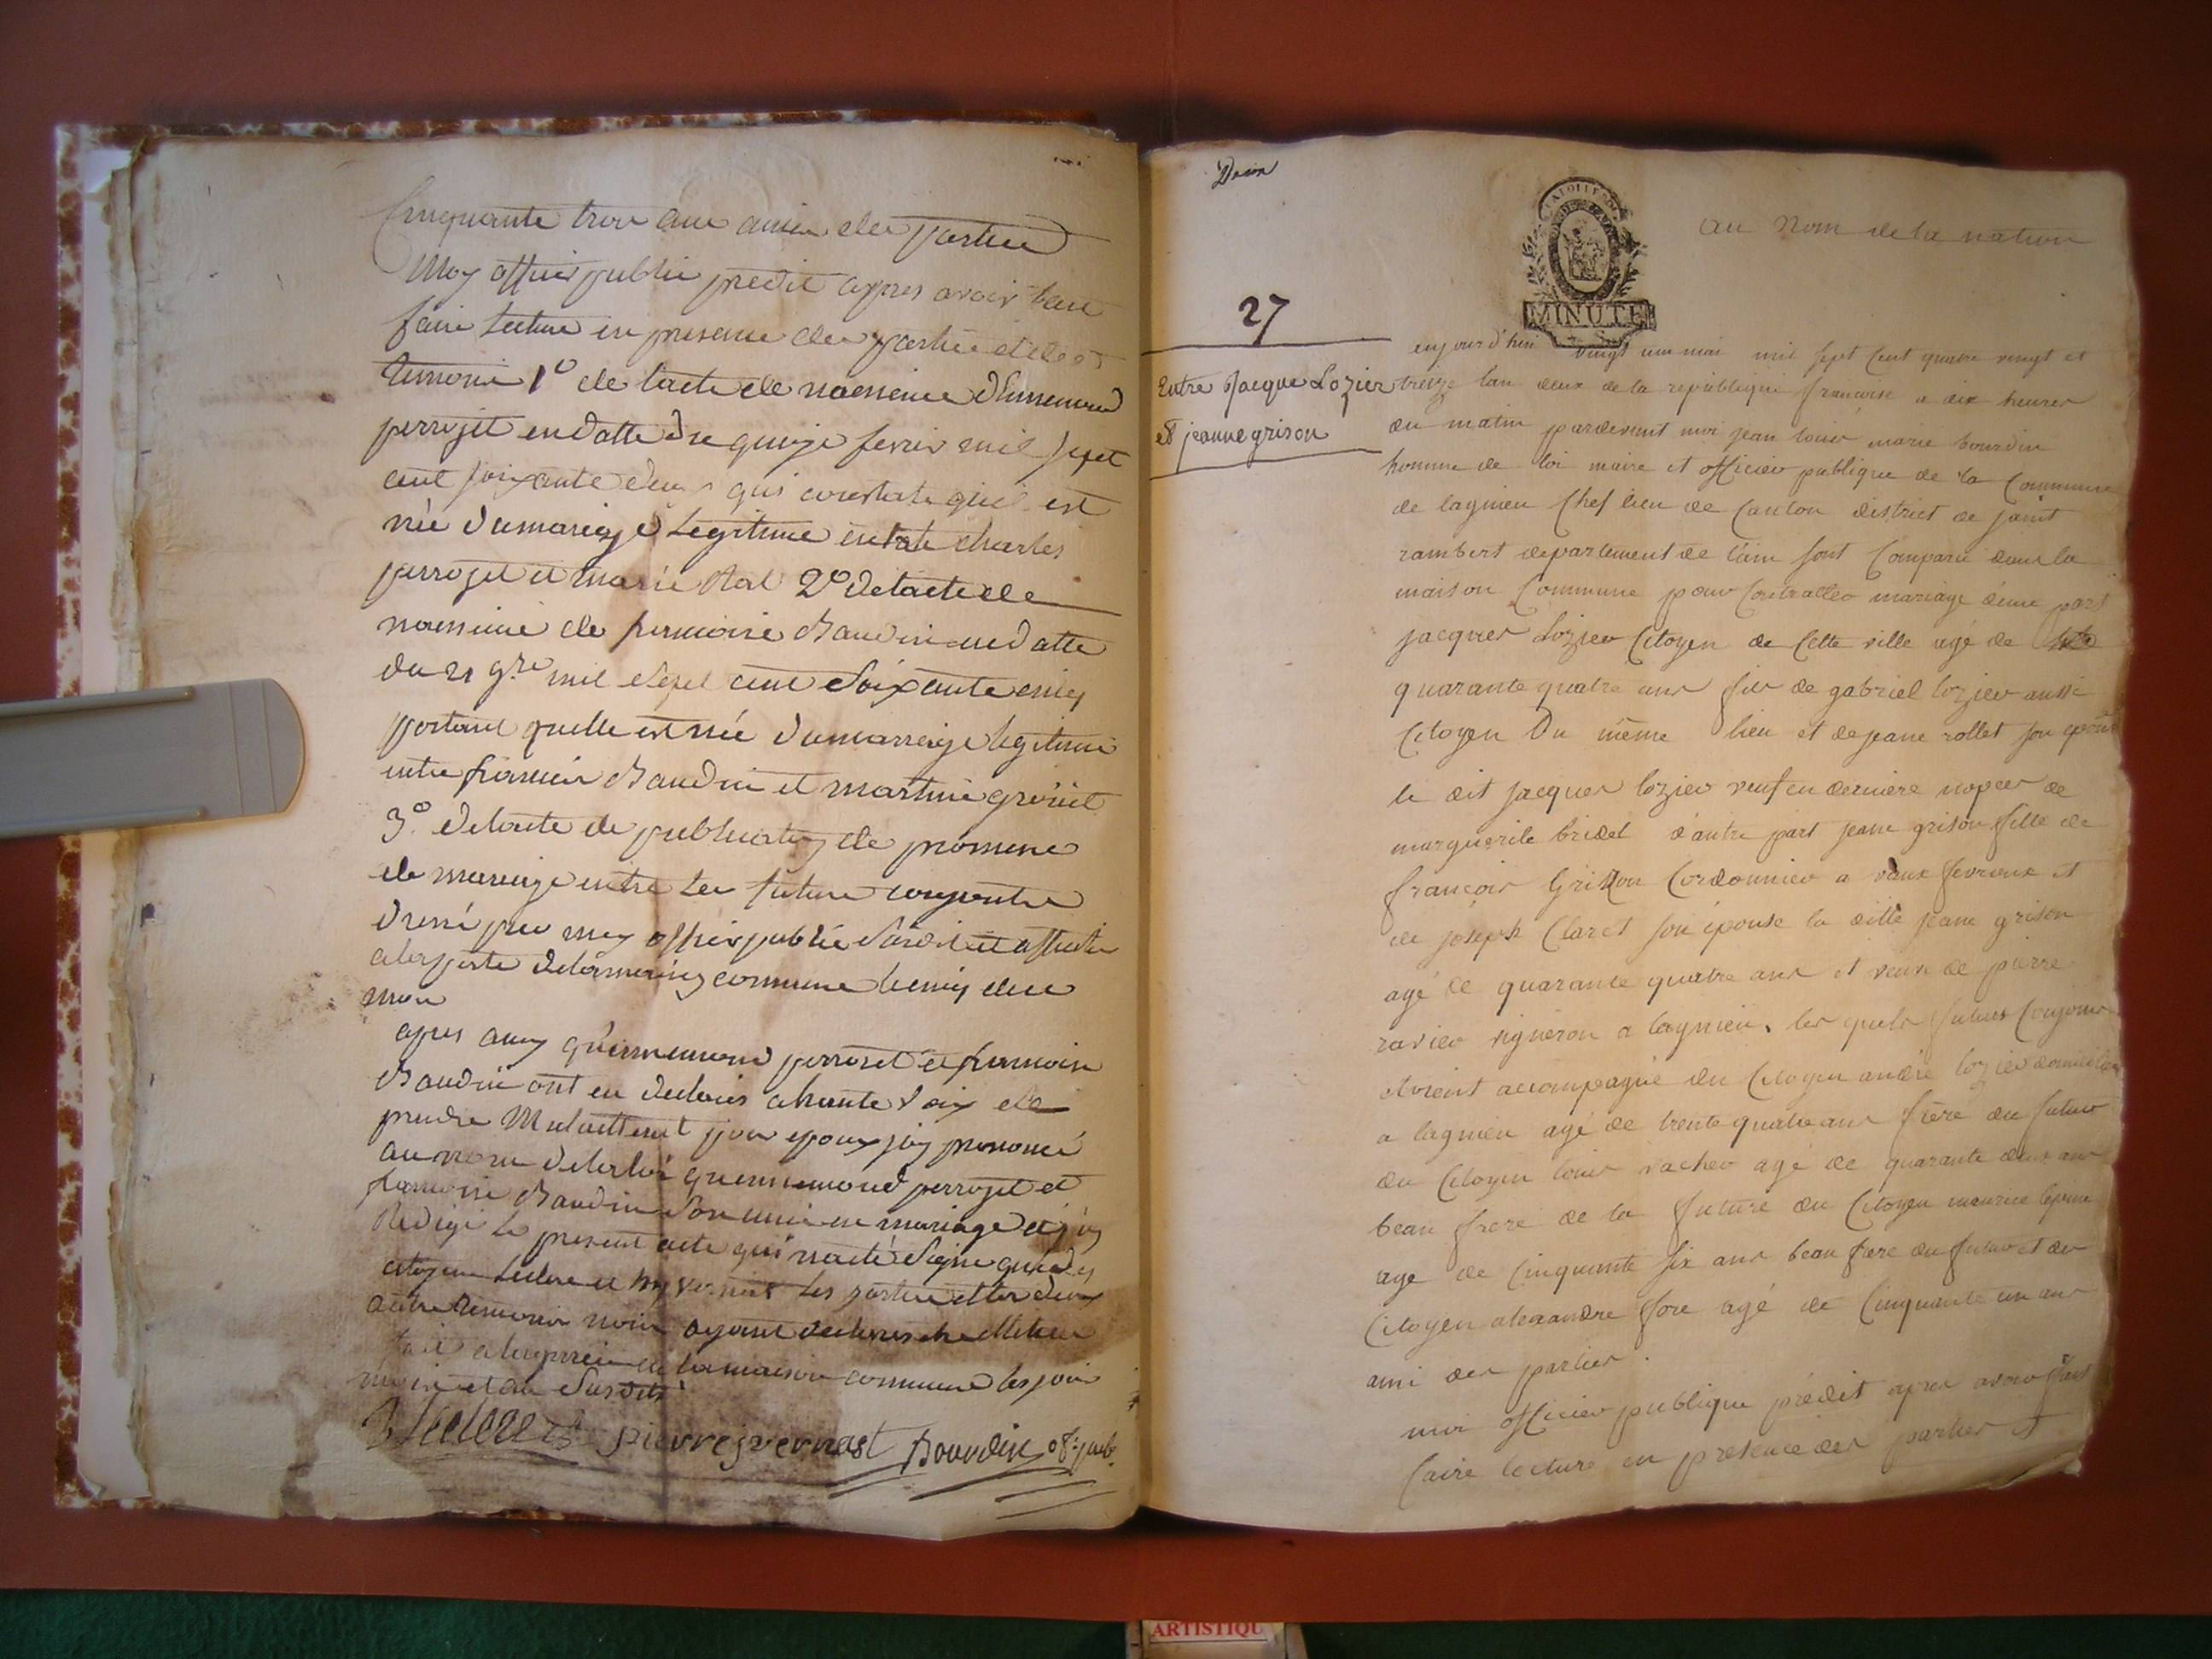 Cinquante trois ans amis des parties
Moy officier public predit appres avoir faire
faire lecture en presence des parties et des
temoins 1º de lacte de naissance dEnnemond
perrozet en datte du quinze fevrier mil sept
cent soixante deux qui constate quil est
née du mariage legitime entre charles
perrozet et marie 2º de lacte de
naissance de francoise Baudin en datte
du 21 9.re mil sept cent soixante cinq
portant quelle est née du marriage legitime
entre francois Baudin et martine
3º de lacte de publication de promesse
de mariage entre les futurs conjoints
dressé par moy officier public susdit et affiché
a la porte de la maison commune le cinq du
mois
apres aussy qu'ennemond perrozet et francoise
Baudin ont eu declarés a haute voix de
prendre Mutuellement pour epoux j'ay prononcé
au nom de la loi qu'ennemond perrozet et
francoise Baudin sont unis en mariage et j'ay
Redigé le present acte qui n'a eté signé que des
citoyens leclerc et les parties et les deux
autres temoins non ayant declarés
fait a en la maison commune les jour
mois et an susdits
pierre jvernast Bourdin of. pub.
Douze
MINUTE
au nom de la nation
27
Entre Jacque Lozier
et jeanne grison
aujourd'hui vingt un mai mil sept cent quatre vingt et
treize l'an deux de la république françoise a dix heures
du matin pardevant moi jean louis marie bourdin
homme de loi maire et officier publique de la Commune
de lagnieu Chef lieu de Canton district de saint
rambert departement de l'ain sont Comparu dans la
maison Commune pour Contracter mariage d'une part
jacques Lozier Citoyen de Cette ville agé de
quarante quatre ans fils de gabriel lozier aussi
Citoyen Du même lieu et de jeane rollet son epouse
le dit jacques lozier veuf en derniere nopces de
marguerite bridet d'autre part jeane grison fille de
françois Grison Cordonnier a vaux fevroux et
de joseph Claret son épouse la ditte jeane grison
agé de quarante quatre ans et veuve de pierre
ravier vigneron a lagnieu. les quels futurs Conjoints
etoient accompagné du Citoyen andré lozier domicilié
a lagnieu agé de trente quatre ans frère du futur
du Citoyen louis vacher agé de quarante deux ans
beau frere de la future du Citoyen maurice lepine
age de Cinquante six ans beau frere du futur et du
Citoyen alexandre fore agé de Cinquante un ans
ami des parties.
moi officier publique prédit apres avoir fait
faire lecture en présence des parties et
ARTISTIQU